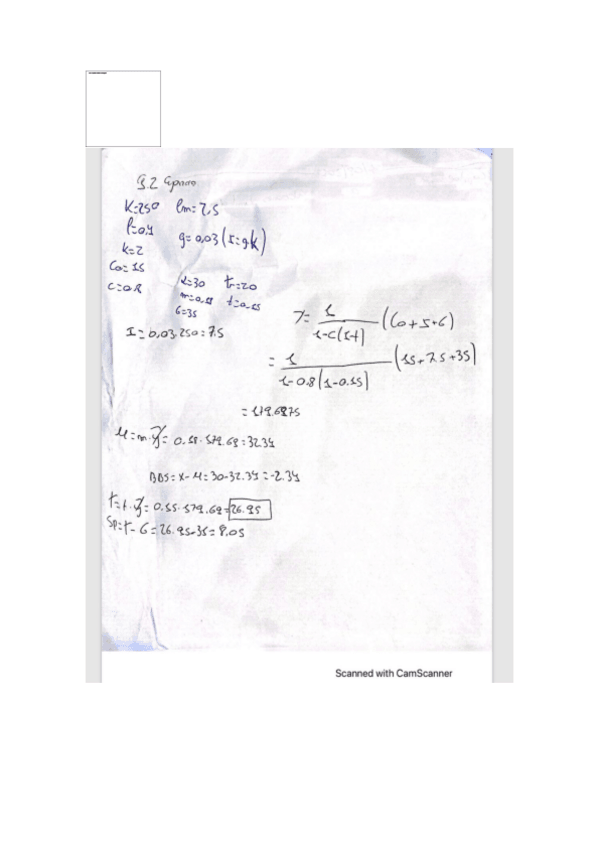 K=250 lm=7,5
l=0,4
g=0,03 (I=g.k)
k=2
Co=15
c=0.8
X=30 tr=20
m=0,18 t=0,15
G=35
I=0,03.250=7.5
Y= 1/(1-c(1-t)) (Co+I+G)
= 1/(1-0.8(1-0.15)) (15+7.5+35)
=179.6875
M=m.Y=0.18.179.69=32.34
BBS=X-M=30-32.34=-2.34
T=t.Y=0.15.179.69=26.95
Sp=T-G=26.95-35=8.05
Scanned with CamScanner